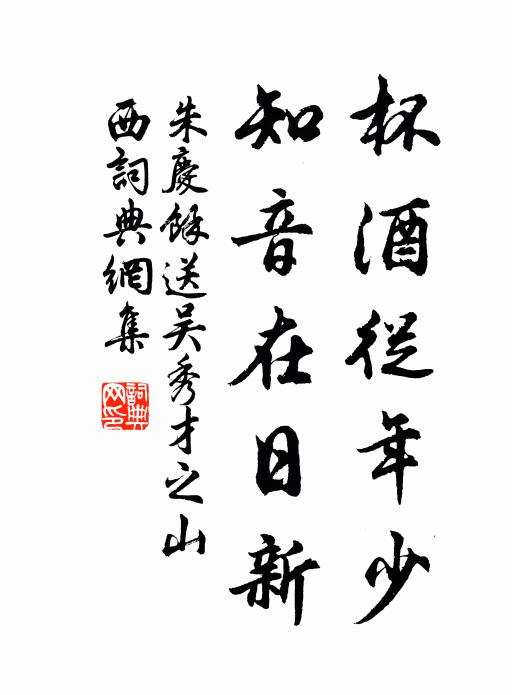 杯酒從年少
知音在日新
朱慶餘送吴秀才之山
西詞典網集
詞典
网印